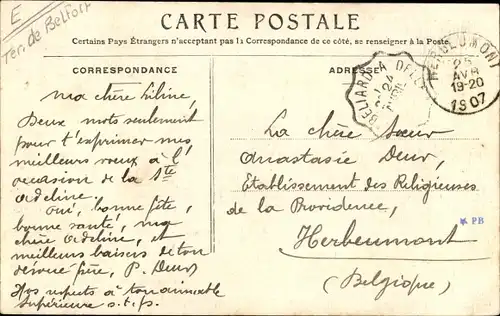 E
Terr. de Belfort
CARTE POSTALE
Certains Pays Étrangers n'acceptant pas la Correspondance de ce côté, se renseigner à la Poste.
CORRESPONDANCE
ADRESSE
BELIARD A DELLE
24
AVRIL
HERBEUMONT
25
AVR
19-20
1907
Ma chère Liline,
Deux mots seulement
pour t'exprimer mes
meilleurs voeux à l'
occasion de la Ste
Adeline.
Oui, bonne fête,
bonne santé, ma
chère Adeline, et
meilleurs baisers de ton
dévoué frère, P. Deuv
Mes respects à ton aimable
supérieure s.t.p.
La chère Soeur
Anastasie Deuv,
Etablissement des Religieuses
de la Providence,
Herbeumont
(Belgique)
PB